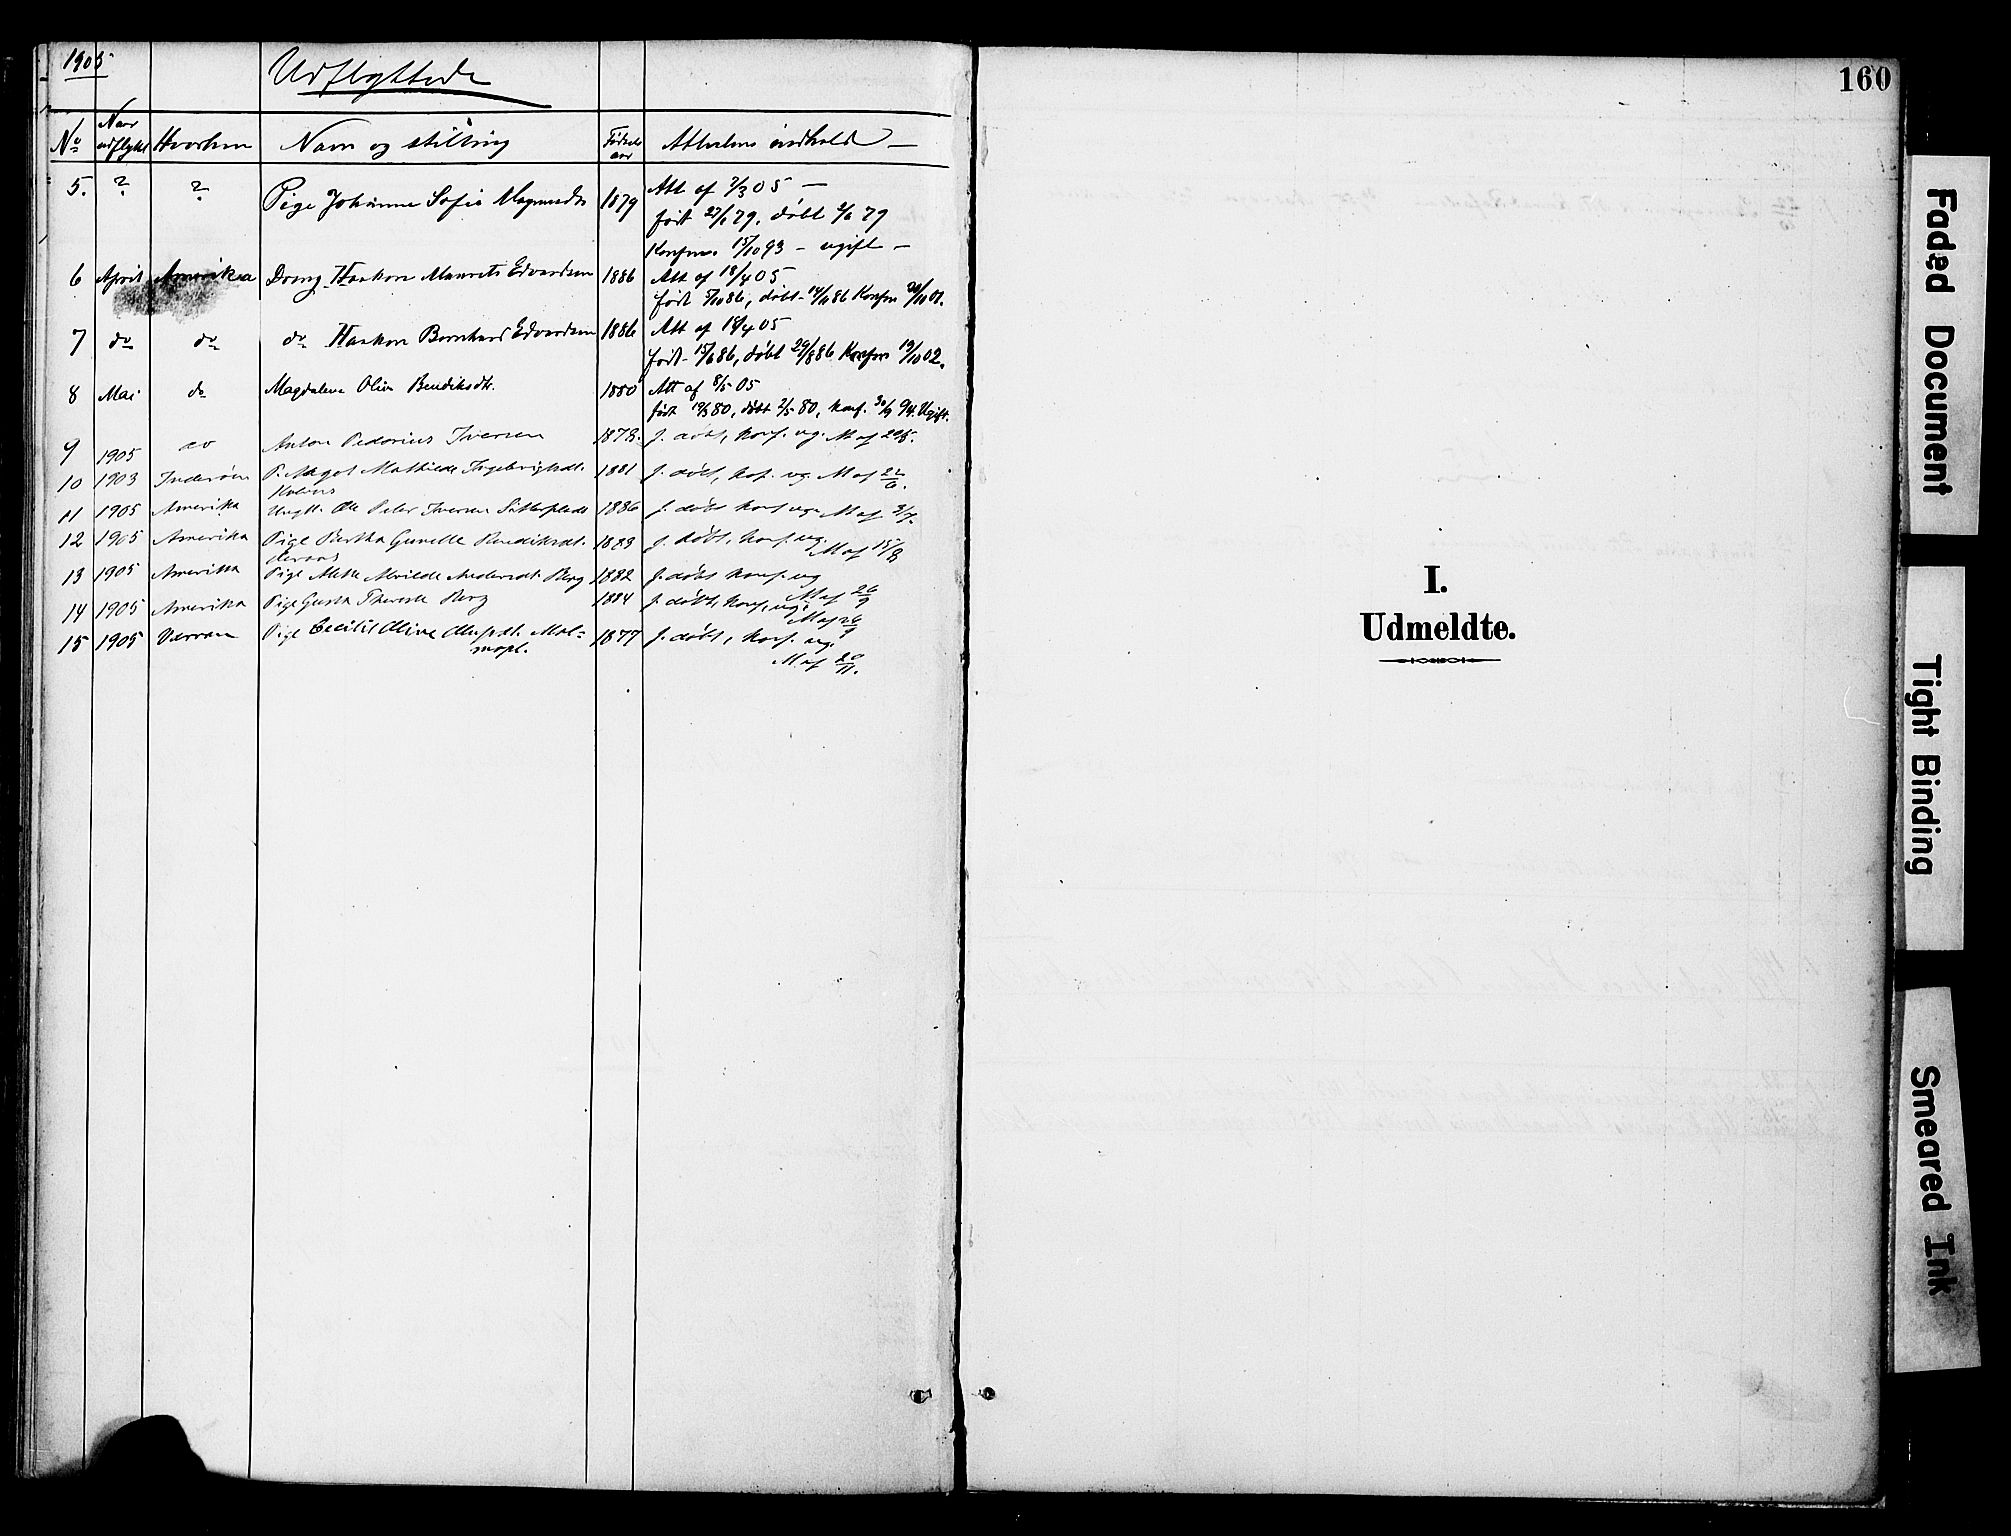 1905
Udflyttede
No Naar udflyttet Hvorhen Navn og stilling Fødsels aar Attestens indhold —
5. ? ? Pige Johanne Sofie Magnusdtr 1879 Att af 7/3 05 —
født 27/1 79, døbt 79
Konfrm. 15/10 93 — ugift —
6 April Amerika Dreng Haakon Maurits Edvardsen 1886 Att af 18/4 05
født 5/10 86, døbt 14/11 86 Konfrm 20/10 01.
7 do do do Haakon Bernhard Edvardsen 1886 Att af 18/4 05
født 15/6 86, døbt 29/8 86 Konfrm 19/10 02.
8 Mai do Magdalena Olive Bendiksdtr. 1880 Att af 8/5 05
født 80, døbt 2/5 80, konf. 30/9 94. Ugift.
9 1905 do Anton Pedorius Iversen 1878. f. døbt, konf. ug. M af
10 1903 Inderøen P. Mathilde Ingebrigtsdt. 1881 f. døbt, kof. ug. M af 22/6.
11 1905 Amerika Ungk. Ole Peter Iversen 1886 f. døbt konf ug. M af 3/7.
12 1905 Amerika Pige Bertha Gunelle Bendiksdt. 1883 f. døbt, konf. ug.
M af 15/8
13 1905 Amerika Pige Alette Alvilde Andersdt. Berg 1882 f. døbt konf. ug
M af 26/9
14 1905 Amerika Pige Gusta Therese Berg 1884 f. døbt, konf, ug.
M af 26/9
15 1905 Værran Pige Cecilie Oline Olufsdt. Mal=
mopl. 1877 f. døbt, konf. ug.
M. af 20/11.
160
I.
Udmeldte.
Faded Document
Tight Binding
Smeared Ink